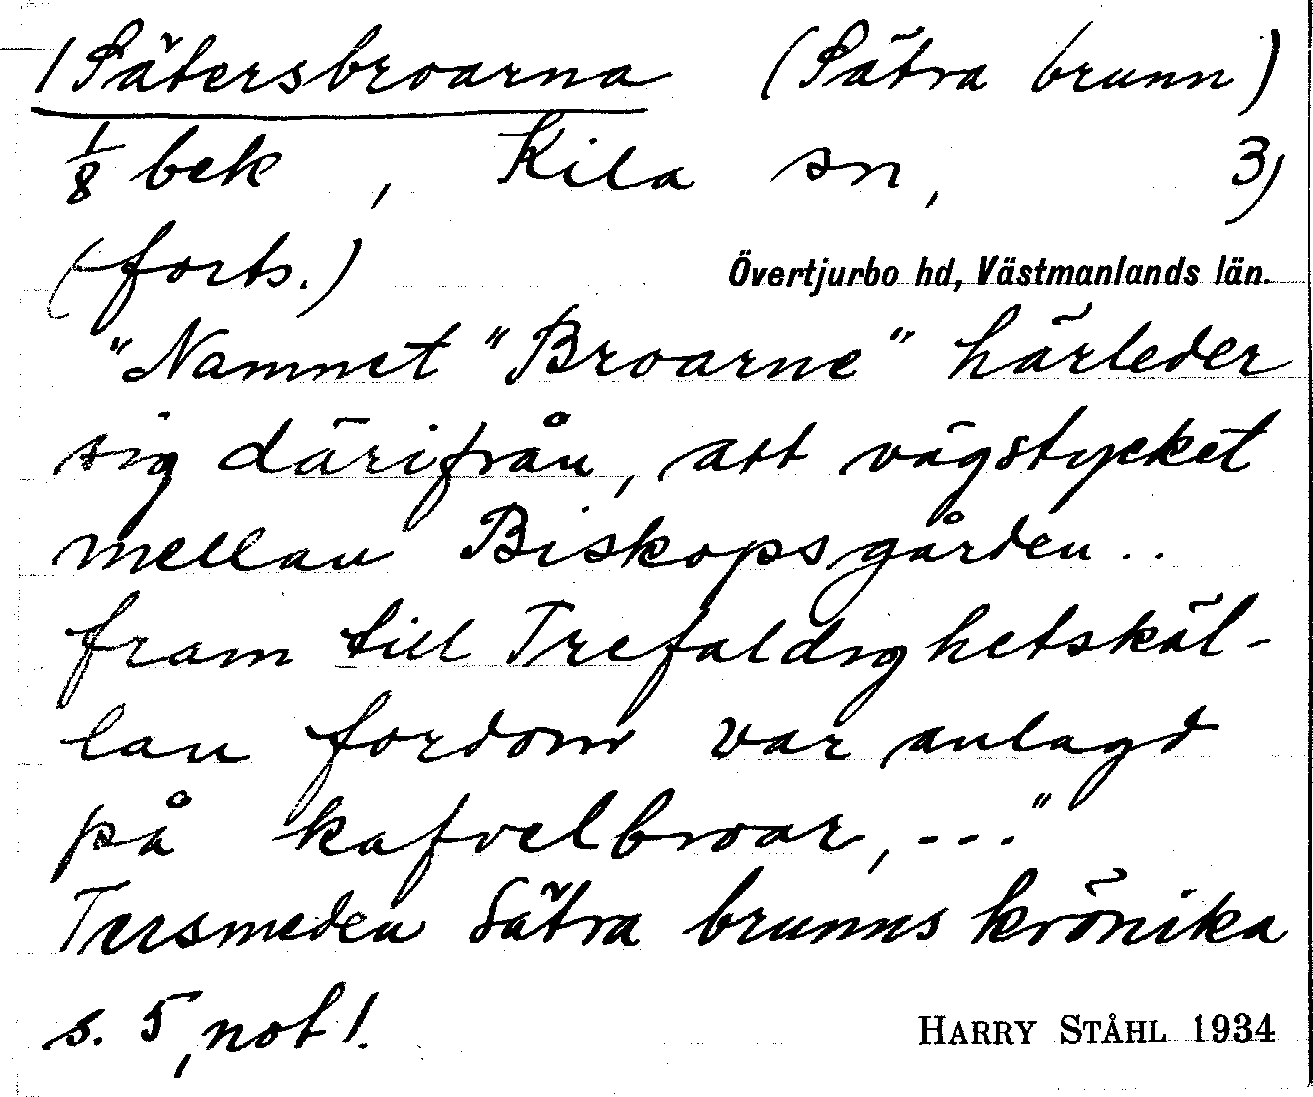 /Sätersbroarna (Sätra brunn)
1/8 bek, Kila sn, 3)
(forts.)
Övertjurbo hd, Västmanlands län.
"Namnet "Broarne" härleder
sig därifrån, att vägstycket
mellan Biskopsgården..
fram till Trefaldighetskäl-
lan fordom var anlagd
på kafvelbroar, ---."
Tersmeden Sätra brunns krönika
s. 5, not 1.
HARRY STÅHL 1934